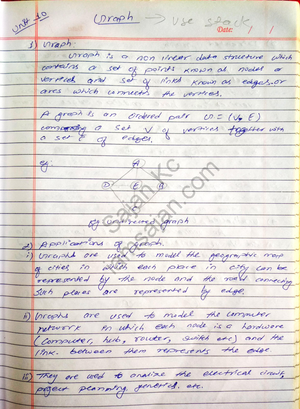 Unit-10
Graph → use stack
Date: / /
1) Graph:
Graph is a non linear data structure which
contains a set of points known as nodes or
vertices and set of links known as edges or
arcs which connects the vertices.
A graph is an ordered pair G = (V, E)
comprising a set V of vertices together with
a set E of edges.
eg:
A
D E B
fig: undirected graph
2) Applications of Graph
i) Graphs are used to model the geographic map
of cities in which each place in city can be
represented by the node and the road connecting
such places are represented by edge.
ii) Graphs are used to model the computer
network in which each node is a hardware
(computer, hub, router, switch etc) and the
link between them represents the edge.
iii) They are used to analize the electrical circuits,
project planning, genetics, etc.
Sajan Kc